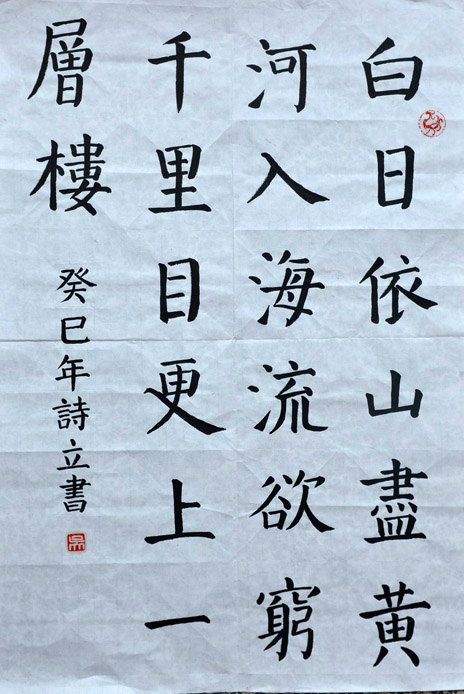 白日依山盡黃
河入海流欲窮
千里目更上一
層樓
癸巳年詩立書